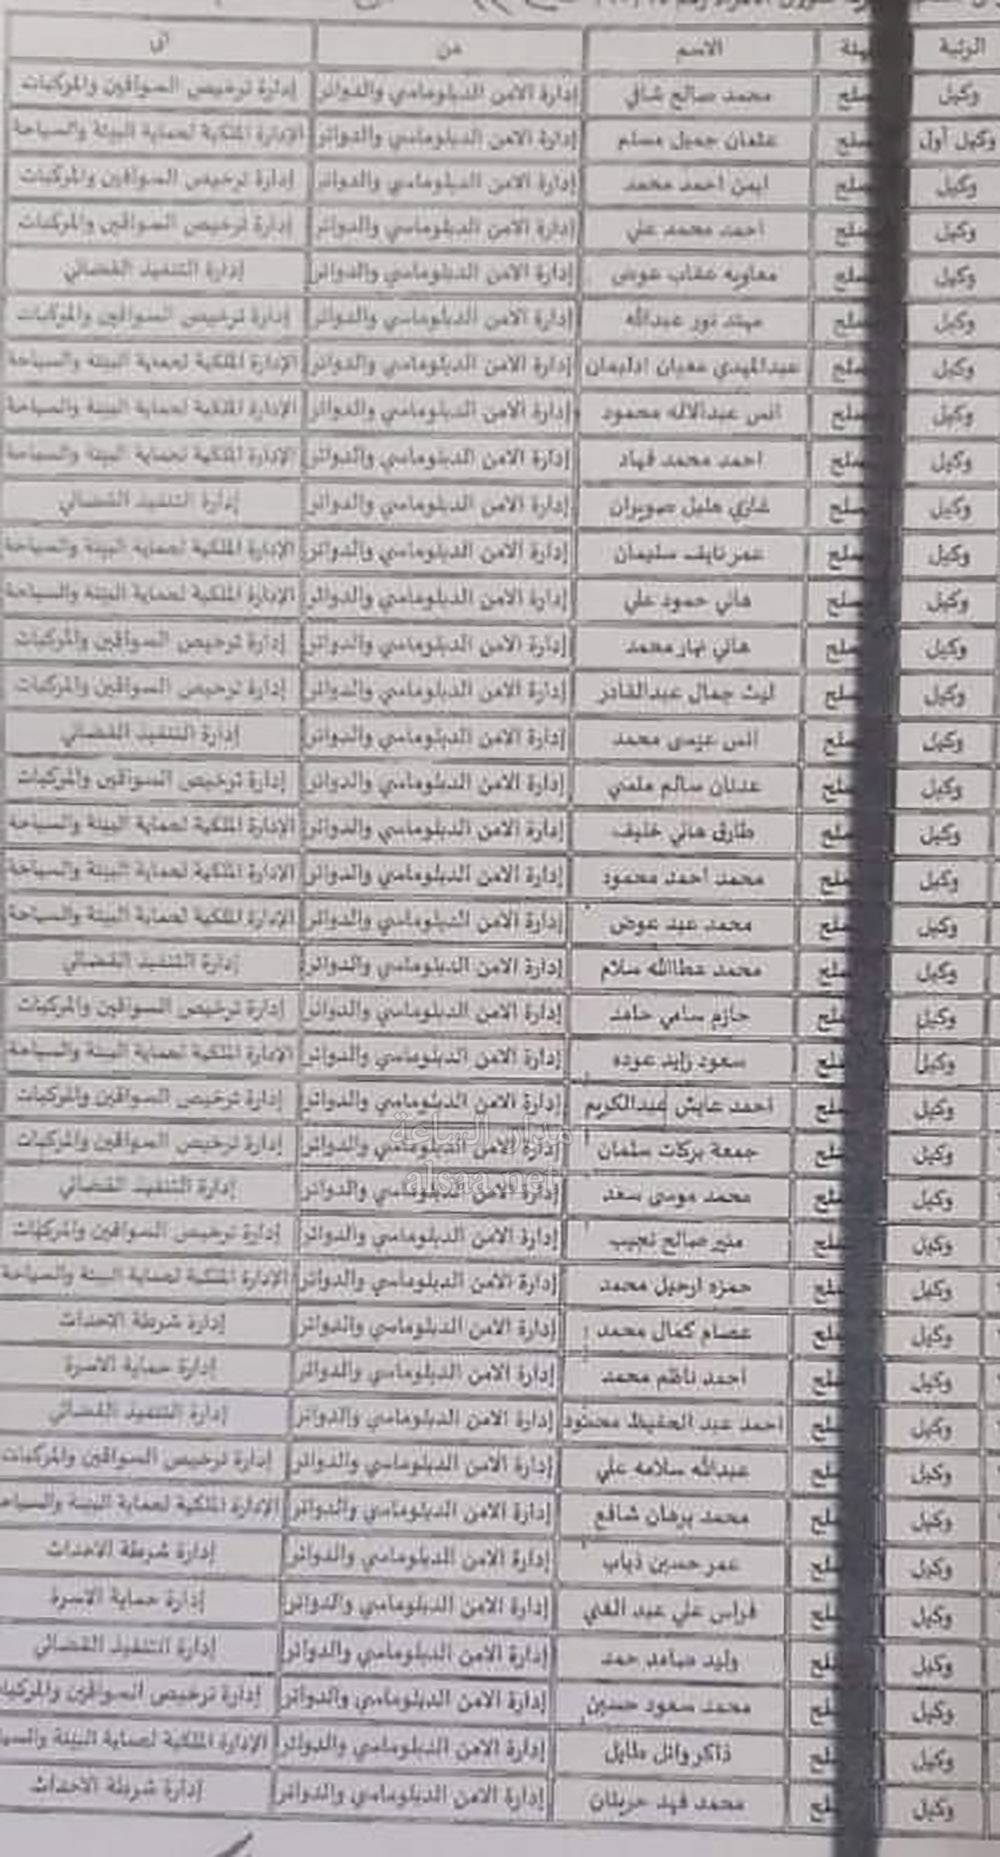 الرتبة الاسم من الى
وكيل محمد صالح شافي إدارة الامن الدبلوماسي والدوائر إدارة ترخيص السواقين والمركبات
وكيل أول عثمان جميل مسلم إدارة الامن الدبلوماسي والدوائر الإدارة الملكية لحماية البيئة والسياحة
وكيل ايمن احمد محمد إدارة الامن الدبلوماسي والدوائر إدارة ترخيص السواقين والمركبات
وكيل احمد محمد علي إدارة الامن الدبلوماسي والدوائر إدارة ترخيص السواقين والمركبات
وكيل معاويه عقاب عوض إدارة الامن الدبلوماسي والدوائر إدارة التنفيذ القضائي
وكيل مهند نور عبدالله إدارة الامن الدبلوماسي والدوائر إدارة ترخيص السواقين والمركبات
وكيل عبدالمهدي إدارة الامن الدبلوماسي والدوائر الإدارة الملكية لحماية البيئة والسياحة
وكيل انس عبدالاله محمود إدارة الامن الدبلوماسي والدوائر الإدارة الملكية لحماية البيئة والسياحة
وكيل احمد محمد فهاد إدارة الامن الدبلوماسي والدوائر الإدارة الملكية لحماية البيئة والسياحة
وكيل هليل صويران إدارة الامن الدبلوماسي والدوائر إدارة التنفيذ القضائي
وكيل عمر نايف سليمان إدارة الامن الدبلوماسي والدوائر الإدارة الملكية لحماية البيئة والسياحة
وكيل هاني حمود علي إدارة الامن الدبلوماسي والدوائر الإدارة الملكية لحماية البيئة والسياحة
وكيل هاني نهار محمد إدارة الامن الدبلوماسي والدوائر إدارة ترخيص السواقين والمركبات
وكيل ليث جمال عبدالقادر إدارة الامن الدبلوماسي والدوائر إدارة ترخيص السواقين والمركبات
وكيل انس عيسى محمد إدارة الامن الدبلوماسي والدوائر إدارة التنفيذ القضائي
وكيل عدنان سالم إدارة الامن الدبلوماسي والدوائر إدارة ترخيص السواقين والمركبات
وكيل طارق هاني خليف إدارة الامن الدبلوماسي والدوائر الإدارة الملكية لحماية البيئة والسياحة
وكيل محمد احمد محمود إدارة الامن الدبلوماسي والدوائر الإدارة الملكية لحماية البيئة والسياحة
وكيل محمد عيد عوض إدارة الامن الدبلوماسي والدوائر الإدارة الملكية لحماية البيئة والسياحة
وكيل محمد عطاالله سلام إدارة الامن الدبلوماسي والدوائر إدارة التنفيذ القضائي
وكيل حازم سامي حامد إدارة الامن الدبلوماسي والدوائر إدارة ترخيص السواقين والمركبات
وكيل سعود زايد عوده إدارة الامن الدبلوماسي والدوائر الإدارة الملكية لحماية البيئة والسياحة
وكيل احمد عايش عبدالكريم إدارة الامن الدبلوماسي والدوائر إدارة ترخيص السواقين والمركبات
وكيل جمعة بركات سلمان إدارة الامن الدبلوماسي والدوائر إدارة ترخيص السواقين والمركبات
وكيل محمد موسى سعد إدارة الامن الدبلوماسي والدوائر إدارة التنفيذ القضائي
وكيل منير صالح نجيب إدارة الامن الدبلوماسي والدوائر إدارة ترخيص السواقين والمركبات
وكيل حمزه ارحيل محمد إدارة الامن الدبلوماسي والدوائر الإدارة الملكية لحماية البيئة والسياحة
وكيل عصام كمال محمد إدارة الامن الدبلوماسي والدوائر إدارة شرطة الاحداث
وكيل احمد ناظم محمد إدارة الامن الدبلوماسي والدوائر إدارة حماية الاسرة
وكيل احمد عبد الحفيظ محمود إدارة الامن الدبلوماسي والدوائر إدارة التنفيذ القضائي
وكيل عبدالله سلامه علي إدارة الامن الدبلوماسي والدوائر إدارة ترخيص السواقين والمركبات
وكيل محمد برهان شافع إدارة الامن الدبلوماسي والدوائر الإدارة الملكية لحماية البيئة والسياح
وكيل عمر حسين ذياب إدارة الامن الدبلوماسي والدوائر إدارة شرطة الاحداث
وكيل فراس علي عبد الغني إدارة الامن الدبلوماسي والدوائر إدارة حماية الاسرة
وكيل وليد حمد إدارة الامن الدبلوماسي والدوائر إدارة التنفيذ القضائي
وكيل محمد سعود حسين إدارة الامن الدبلوماسي والدوائر إدارة ترخيص السواقين والمركبات
وكيل ذاكر وائل طايل إدارة الامن الدبلوماسي والدوائر الإدارة الملكية لحماية البيئة والسيا
وكيل محمد فهد إدارة الامن الدبلوماسي والدوائر إدارة شرطة الاحداث
مدار الساعة
alsaa.net